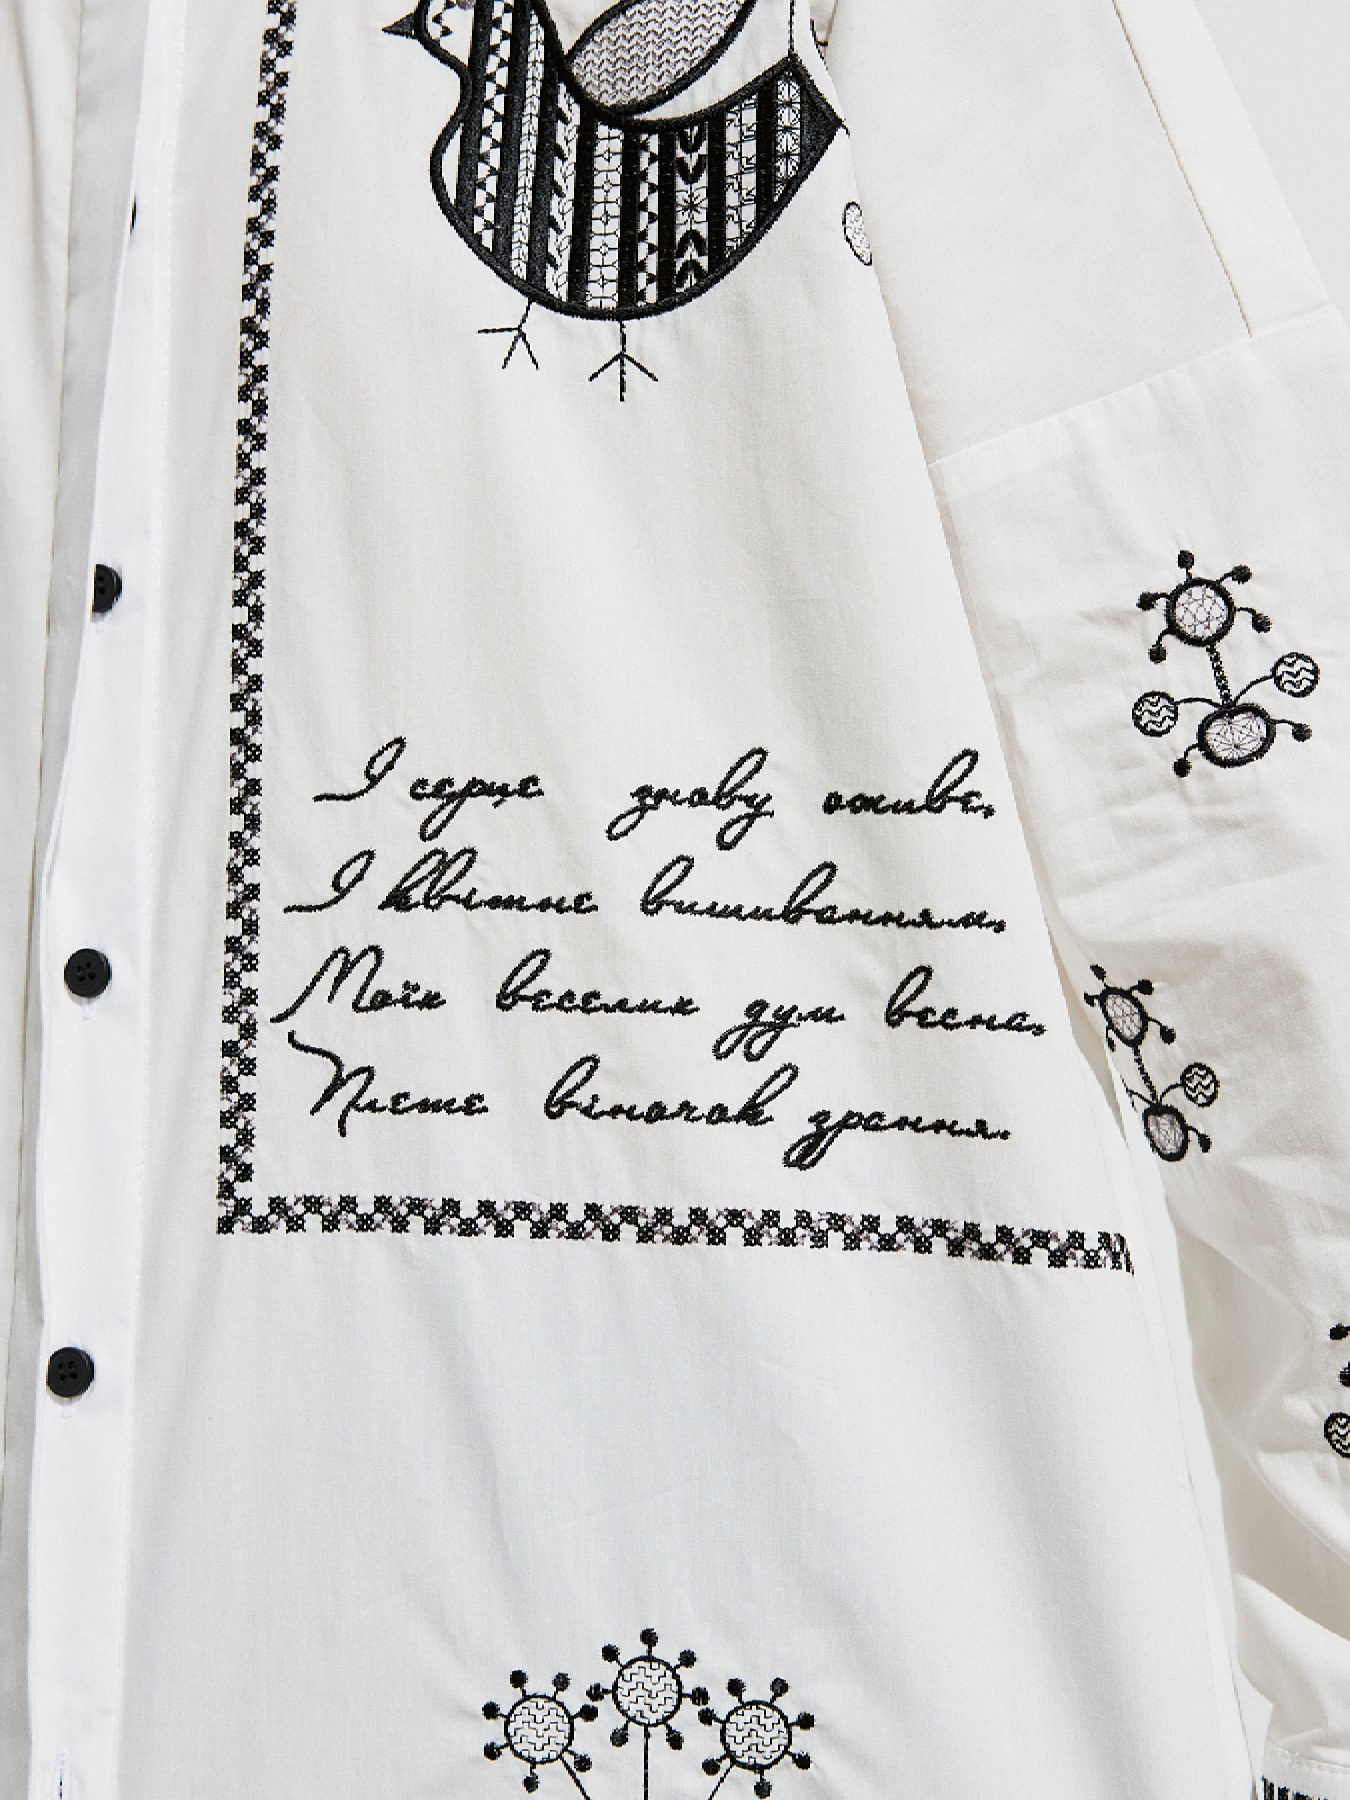 І серце знову оживе,
І квітне вишиванням,
Моїх веселих дум весна,
Плете віночок зрання.